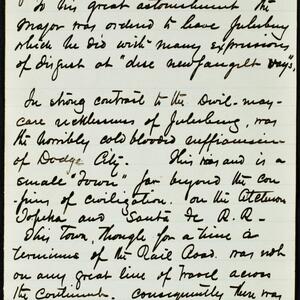 To his great astonishment the
Major was ordered to leave Julesburg
which he did with many expressions
of disgust at "dese newfangelt vays".
In strong contrast to the Devil-may-
care recklessness of Julesburg, was
the horribly cold blooded ruffianism
of Dodge City. This was and is a
small "town" far beyond the con-
fines of civilization. on the Atchison
Topeka and Santa Fe R.R.
This Town, though for a time a
terminus of the Rail Road, was not
on any great line of travel across
the Continent. consequently there was